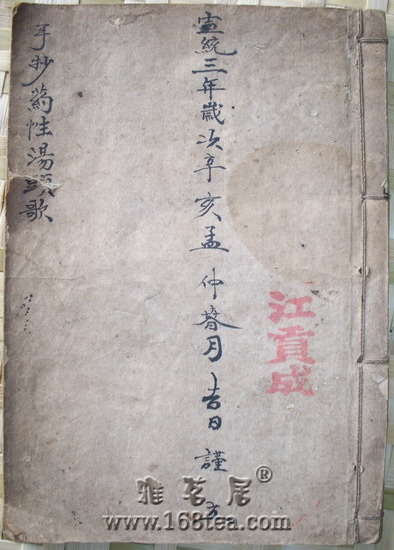 江貢成
宣統三年歲次辛亥孟仲春月吉日謹
手抄葯性湯頭歌
雅茗居®
www.168tea.com